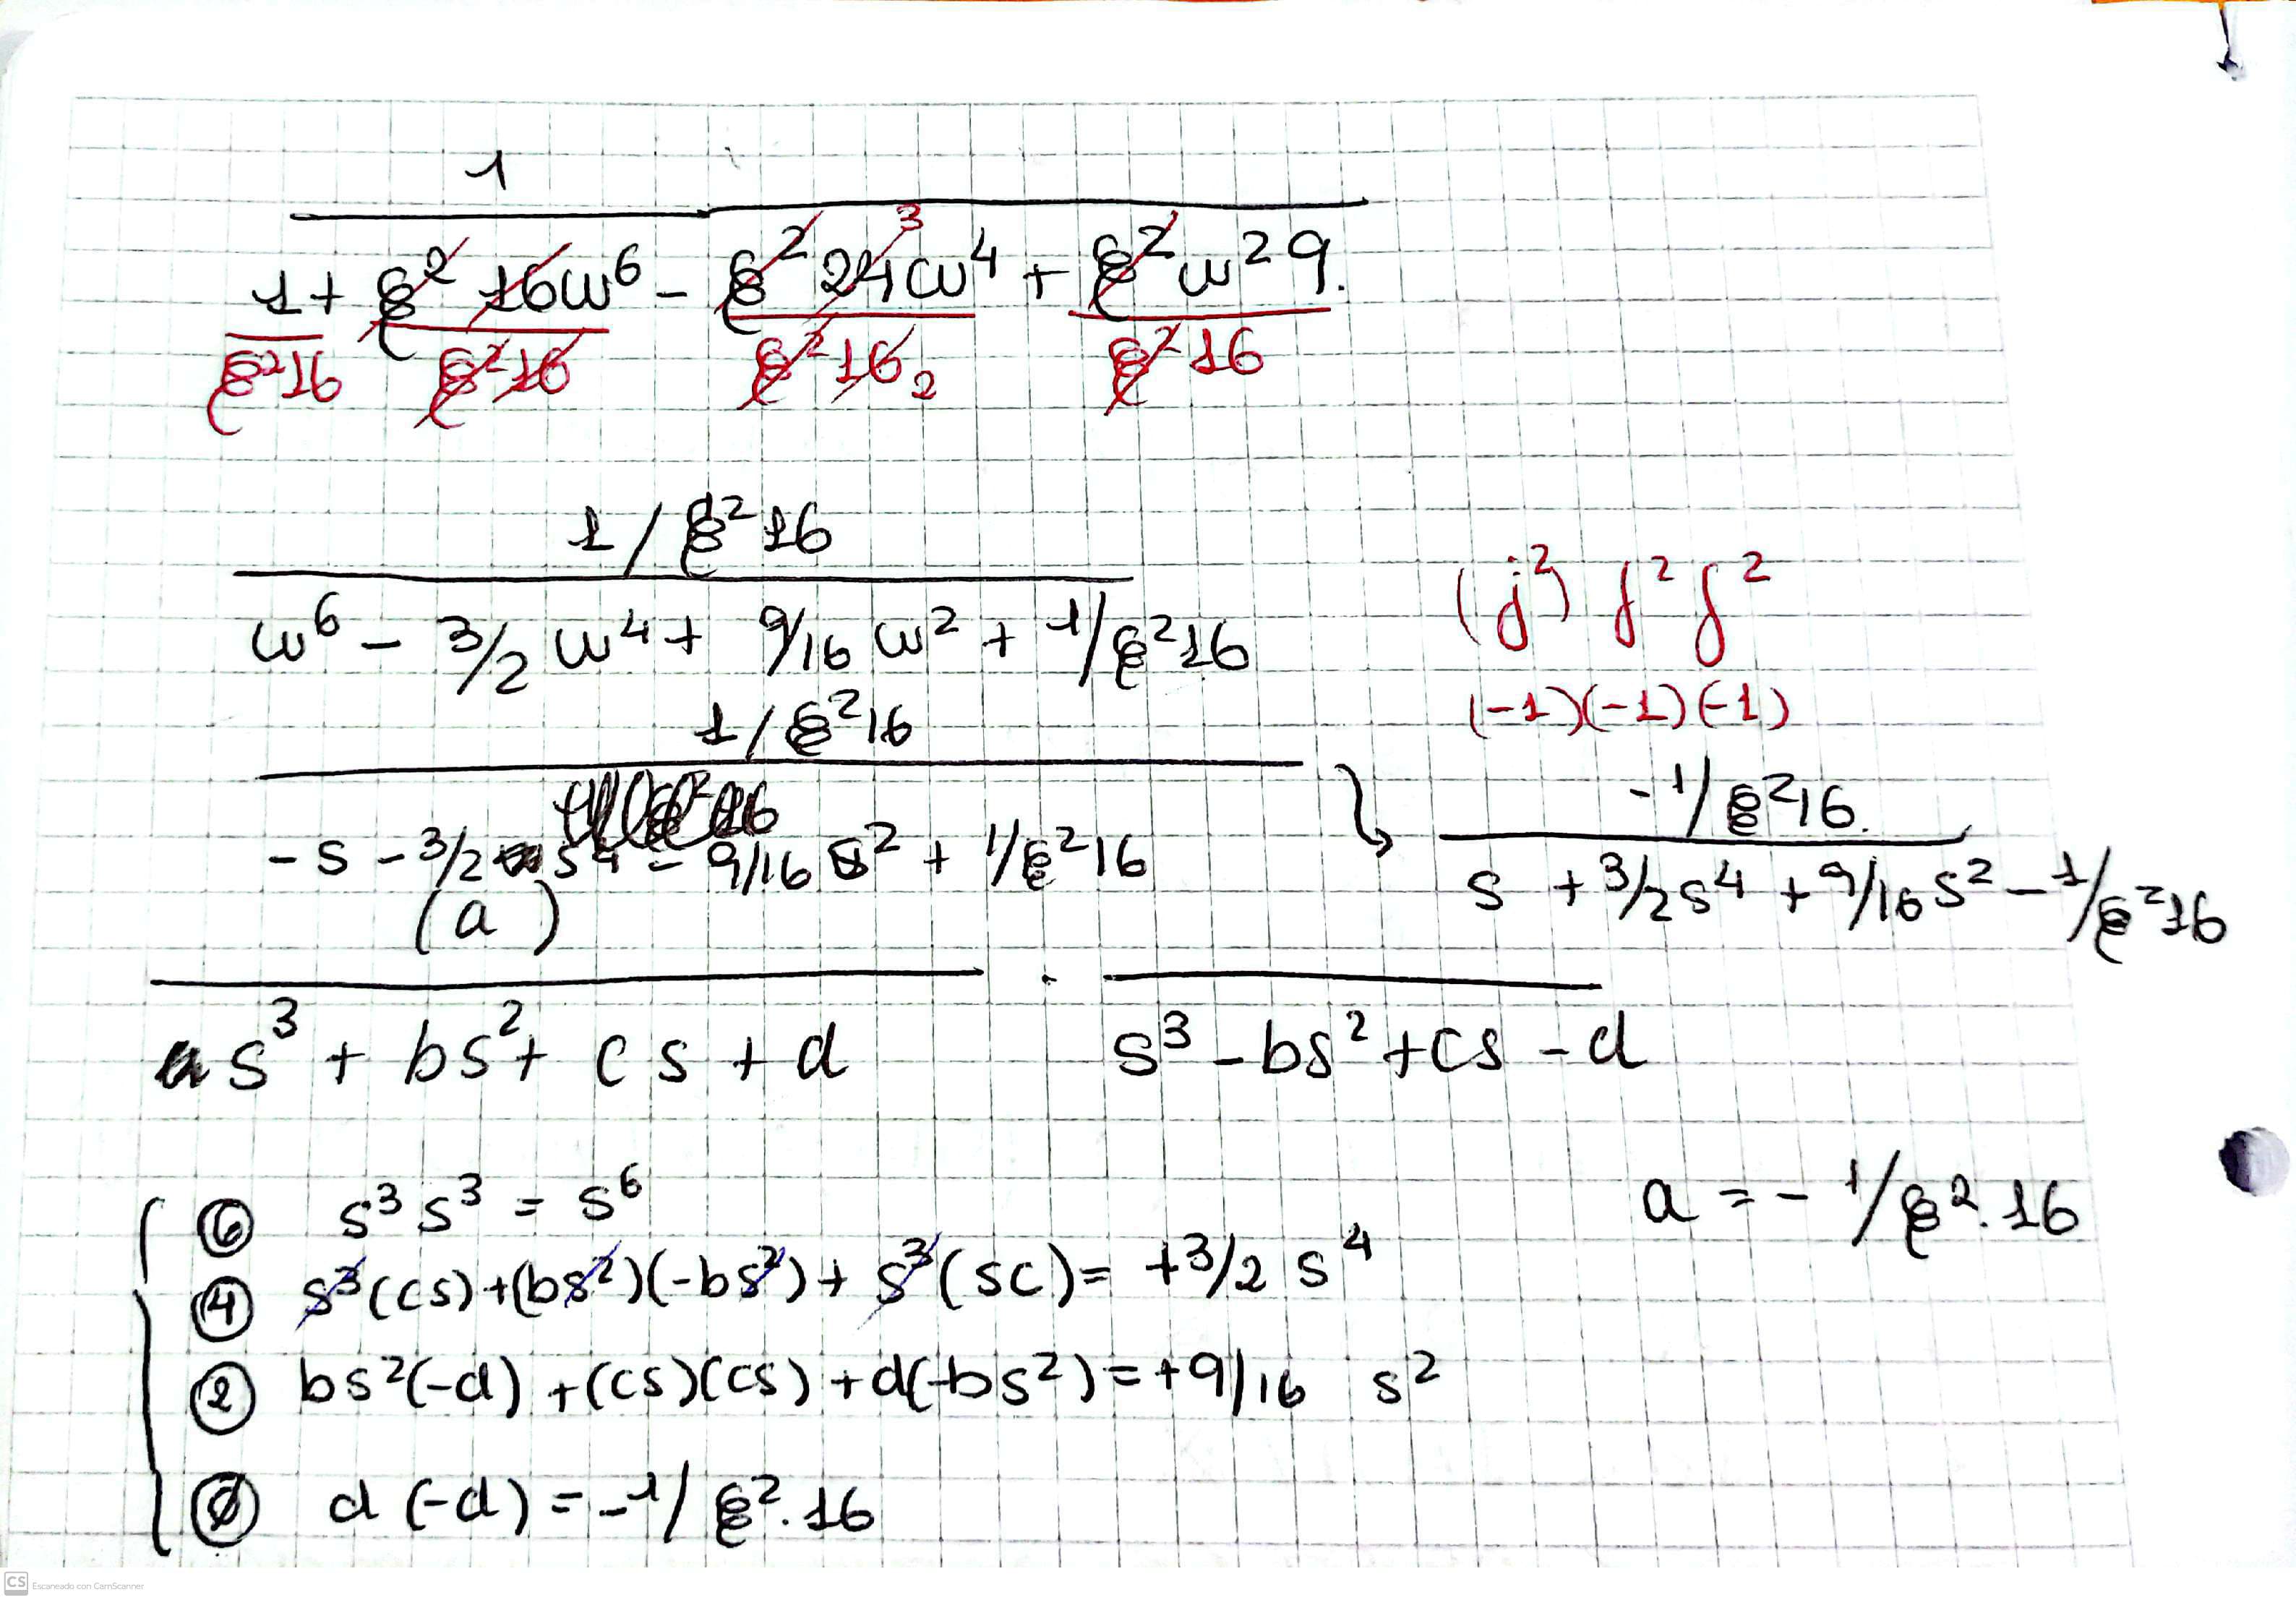 1
1 + ξ² 16 ω⁶ - ξ² 24 ω⁴ + ξ² ω² 9.
3
ξ² 16 ξ² 16 ξ² 16 2 ξ² 16
1 / ξ² 16
ω⁶ - 3/2 ω⁴ + 9/16 ω² + 1/ξ² 16
(j²) j² j²
(-1)(-1)(-1)
1 / ξ² 16
-s - 3/2 s⁴ - 9/16 s² + 1/ξ² 16
-1/ξ² 16.
s + 3/2 s⁴ + 9/16 s² - 1/ξ² 16
(a)
s³ + bs² + cs + d . s³ - bs² + cs - d
⑥ s³ s³ = s⁶
a = - 1/ξ². 16
④ s³(cs) + (bs²)(-bs²) + s³(sc) = +3/2 s⁴
② bs²(-d) + (cs)(cs) + d(-bs²) = +9/16 s²
⓪ d (-d) = -1/ ξ². 16
CS Escaneado con CamScanner